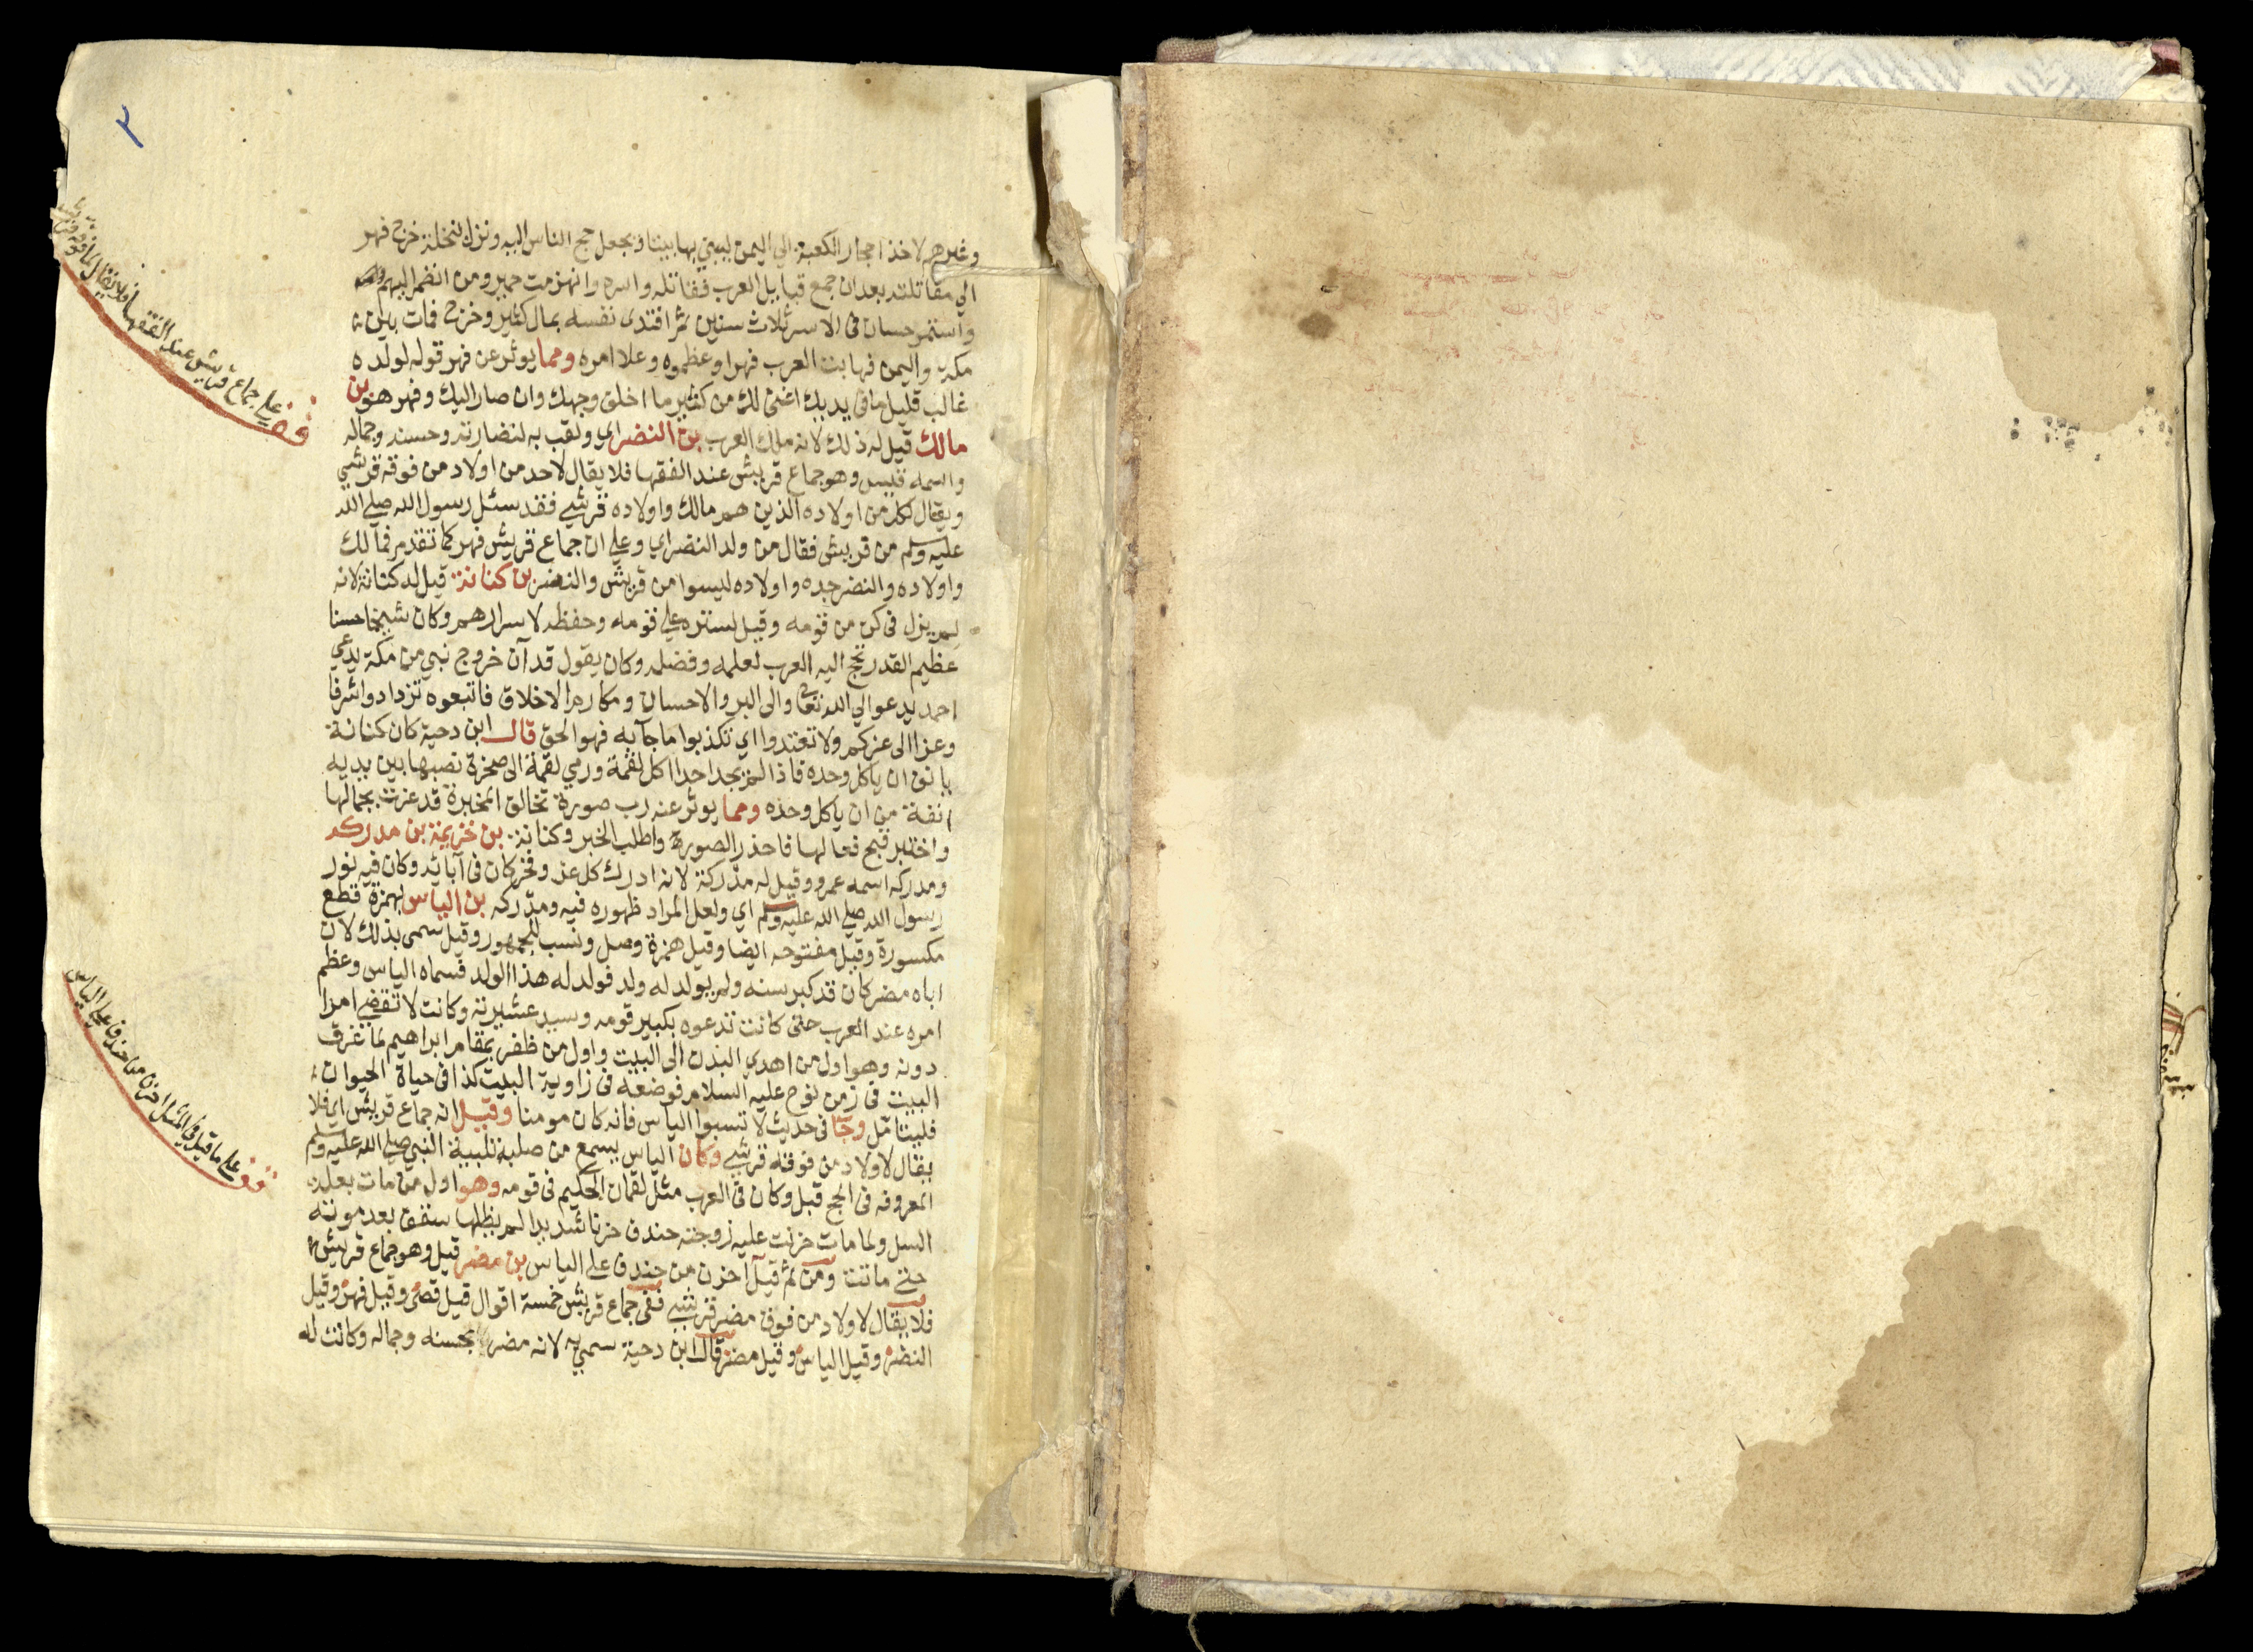 ٣
وغيرهم لاخذ احجار الكعبة الي اليمن ليبني بها بيتا ويجعل حج الناس اليه ونزل بنخلة خرج فهر
الي مقاتلته بعد ان جمع قبايل العرب فقاتله واسره وانهزمت حمير ومن انضم اليهم
واستمر حسان في الاسر ثلاث سنين ثم افتدى نفسه بمال كثير وخرج فمات بين
مكة واليمن فهابت العرب فهرا وعظموه وعلا امره ومما يوثر عن فهر قوله لولده
غالب قليل ما في يديك اغنى لك من كثير ما اخلق وجهك وان صار اليك وفهر هو بن
مالك قيل له ذلك لانه ملك العرب بن النضر اي ولقب به لنضارته وحسنه وجماله
واسمه قيس وهو جماع قريش عند الفقها فلا يقال لاحد من اولاد من فوقه قرشي
ويقال لكل من اولاده الذين هم مالك واولاده قرشي فقد سئل رسول الله صلي الله
عليه وسلم من قريش فقال من ولد النضر اي وعلي ان جماع قريش فهر كما تقدم فمالك
واولاده والنضر جده واولاده ليسوا من قريش والنضر بن كنانة قيل له كنانة لانه
لم يزل في كن من قومه وقيل لستره علي قومه وحفظه لاسرارهم وكان شيخا حسنا
عظيم القدر تحج اليه العرب لعلمه وفضله وكان يقول قد آن خروج نبي من مكة يدعي
احمد يدعو الي الله تعالى والى البر والاحسان ومكارم الاخلاق فاتبعوه تزدادوا شرفا
وعزا الى عزكم ولا تعتدوا اي تكذبوا ما جآ به فهو الحق قال ابن دحية كان كنانة
يانف ان ياكل وحده فاذا لم يجد احدا اكل لقمة ورمي لقمة الى صخرة نصبها بين يديه
انفة من ان ياكل وحده ومما يوثر عنه رب صورة تخالف المخبرة قد غرت بجمالها
واختبر قبح فعالها فاحذر الصورة واطلب الخبر وكنانة بن خزيمة بن مدركه
ومدركه اسمه عمرو وقيل له مدركة لانه ادرك كل عز وفخر كان في آبائه وكان فيه نور
رسول الله صلي الله عليه وسلم اي ولعل المراد ظهوره فيه ومدركه بن الياس بهمزة قطع
مكسورة وقيل مفتوحه ايضا وقيل همزة وصل ونسب للجمهور وقيل سمى بذلك لان
اباه مضر كان قد كبر سنه ولم يولد له ولد فولد له هذا الولد فسماه الياس وعظم
امره عند العرب حتى كانت تدعوه بكبير قومه وسيد عشيرته وكانت لا تقضي امرا
دونه وهو اول من اهدي البدن الى البيت واول من ظفر بمقام ابراهيم لما غرق
البيت في زمن نوح عليه السلام فوضعه في زاوية البيت كذا في حياة الحيوان
فليتامل وجآ في حديث لا تسبوا الياس فانه كان مومنا وقيل انه جماع قريش اي فلا
يقال لاولاد من فوقه قرشي وكان الياس يسمع من صلبه تلبية النبي صلي الله عليه وسلم
المعروفه في الحج قيل وكان في العرب مثل لقمان الحكيم في قومه وهو اول من مات بعلة
السل ولما مات حزنت عليه زوجته خندف حزنا شديدا لم يظلها سقف بعد موته
حتي ماتت ومن ثم قيل احزن من خندف علي الياس بن مضر قيل وهو جماع قريش
فلا يقال لاولاد من فوق مضر قرشي ففي جماع قريش خمسة اقوال قيل قصي وقيل فهر وقيل
النضر وقيل الياس وقيل مضر قال ابن دحية سمي به لانه مضر بحسنه وجماله وكانت له
قف علي جماع قريش عند الفقها فلا يقال
قف علي ما قيل في المثل احزن من خندف علي الياس